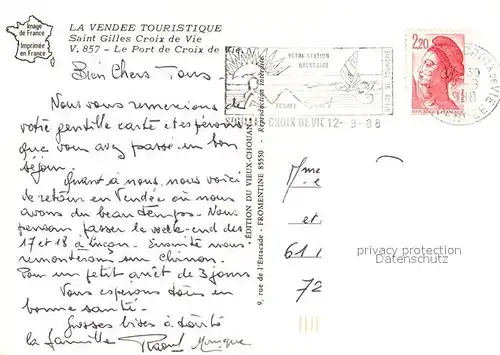 Image
de France
Imprimée
en France
LA VENDEE TOURISTIQUE
Saint Gilles Croix de Vie
V. 857 - Le Port de Croix de Vie
Bien Chers Tous -
Nous vous remercions de
votre gentille carte et espérons
que vous avez passé un bon
séjour.
Quant à nous, nous voici
de retour en Vendée où nous
avons du beau temps. Nous
pensons passer le week-end des
17 et 18 à Luçon. Ensuite nous
remonterons sur Chinon.
Pour un petit arrêt de 3 jours
Nous espérons tous en
bonne santé.
Grosses bises à toute
la famille Raoul Monique
EDITION DU VIEUX-CHOUAN
9, rue de l'Estacade - FROMENTINE 85550 - Reproduction interdite
VOTRE STATION
BALNEAIRE
VENDEE
OFFICE DE TOURISME
CROIX DE VIE 12-9-88
2,20
Mme
et
61
72
privacy protection
DAMPFACHSE.COM